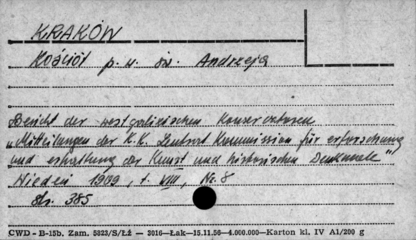 KRAKÓW
Kościół p. w. św. Andrzeja
Bericht der westgalizischen Konservatoren
"Mitteilungen der K.K. Zentral Kommission für erforschung
und erhaltung der Kunst und historischen Denkmale"
Wiedeń 1909, t. VIII, Nr. 8
str. 385
CWD - B-15b. Zam. 5823/S/Łż — 2016—Łak—15.11.56—4.000.000—Karton kl. IV A1/200 g